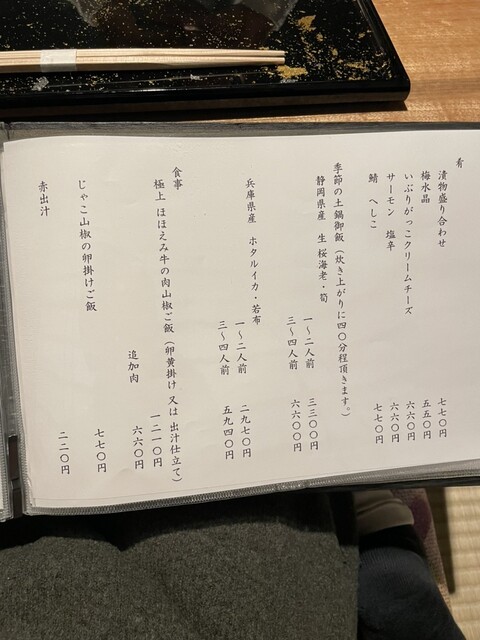 肴
漬物盛り合わせ 七七〇円
梅水晶 五五〇円
いぶりがっこクリームチーズ 六六〇円
サーモン 塩辛 六六〇円
鯖 へしこ 七七〇円
季節の土鍋御飯（炊き上がりに四〇分程頂きます。）
静岡県産 生 桜海老・筍
一〜二人前 三三〇〇円
三〜四人前 六六〇〇円
兵庫県産 ホタルイカ・若布
一〜二人前 二九七〇円
三〜四人前 五九四〇円
食事
極上 ほほえみ牛の肉山椒ご飯（卵黄掛け 又は 出汁仕立て）
一二一〇円
追加肉 六六〇円
じゃこ山椒の卵掛けご飯 七七〇円
赤出汁 二二〇円